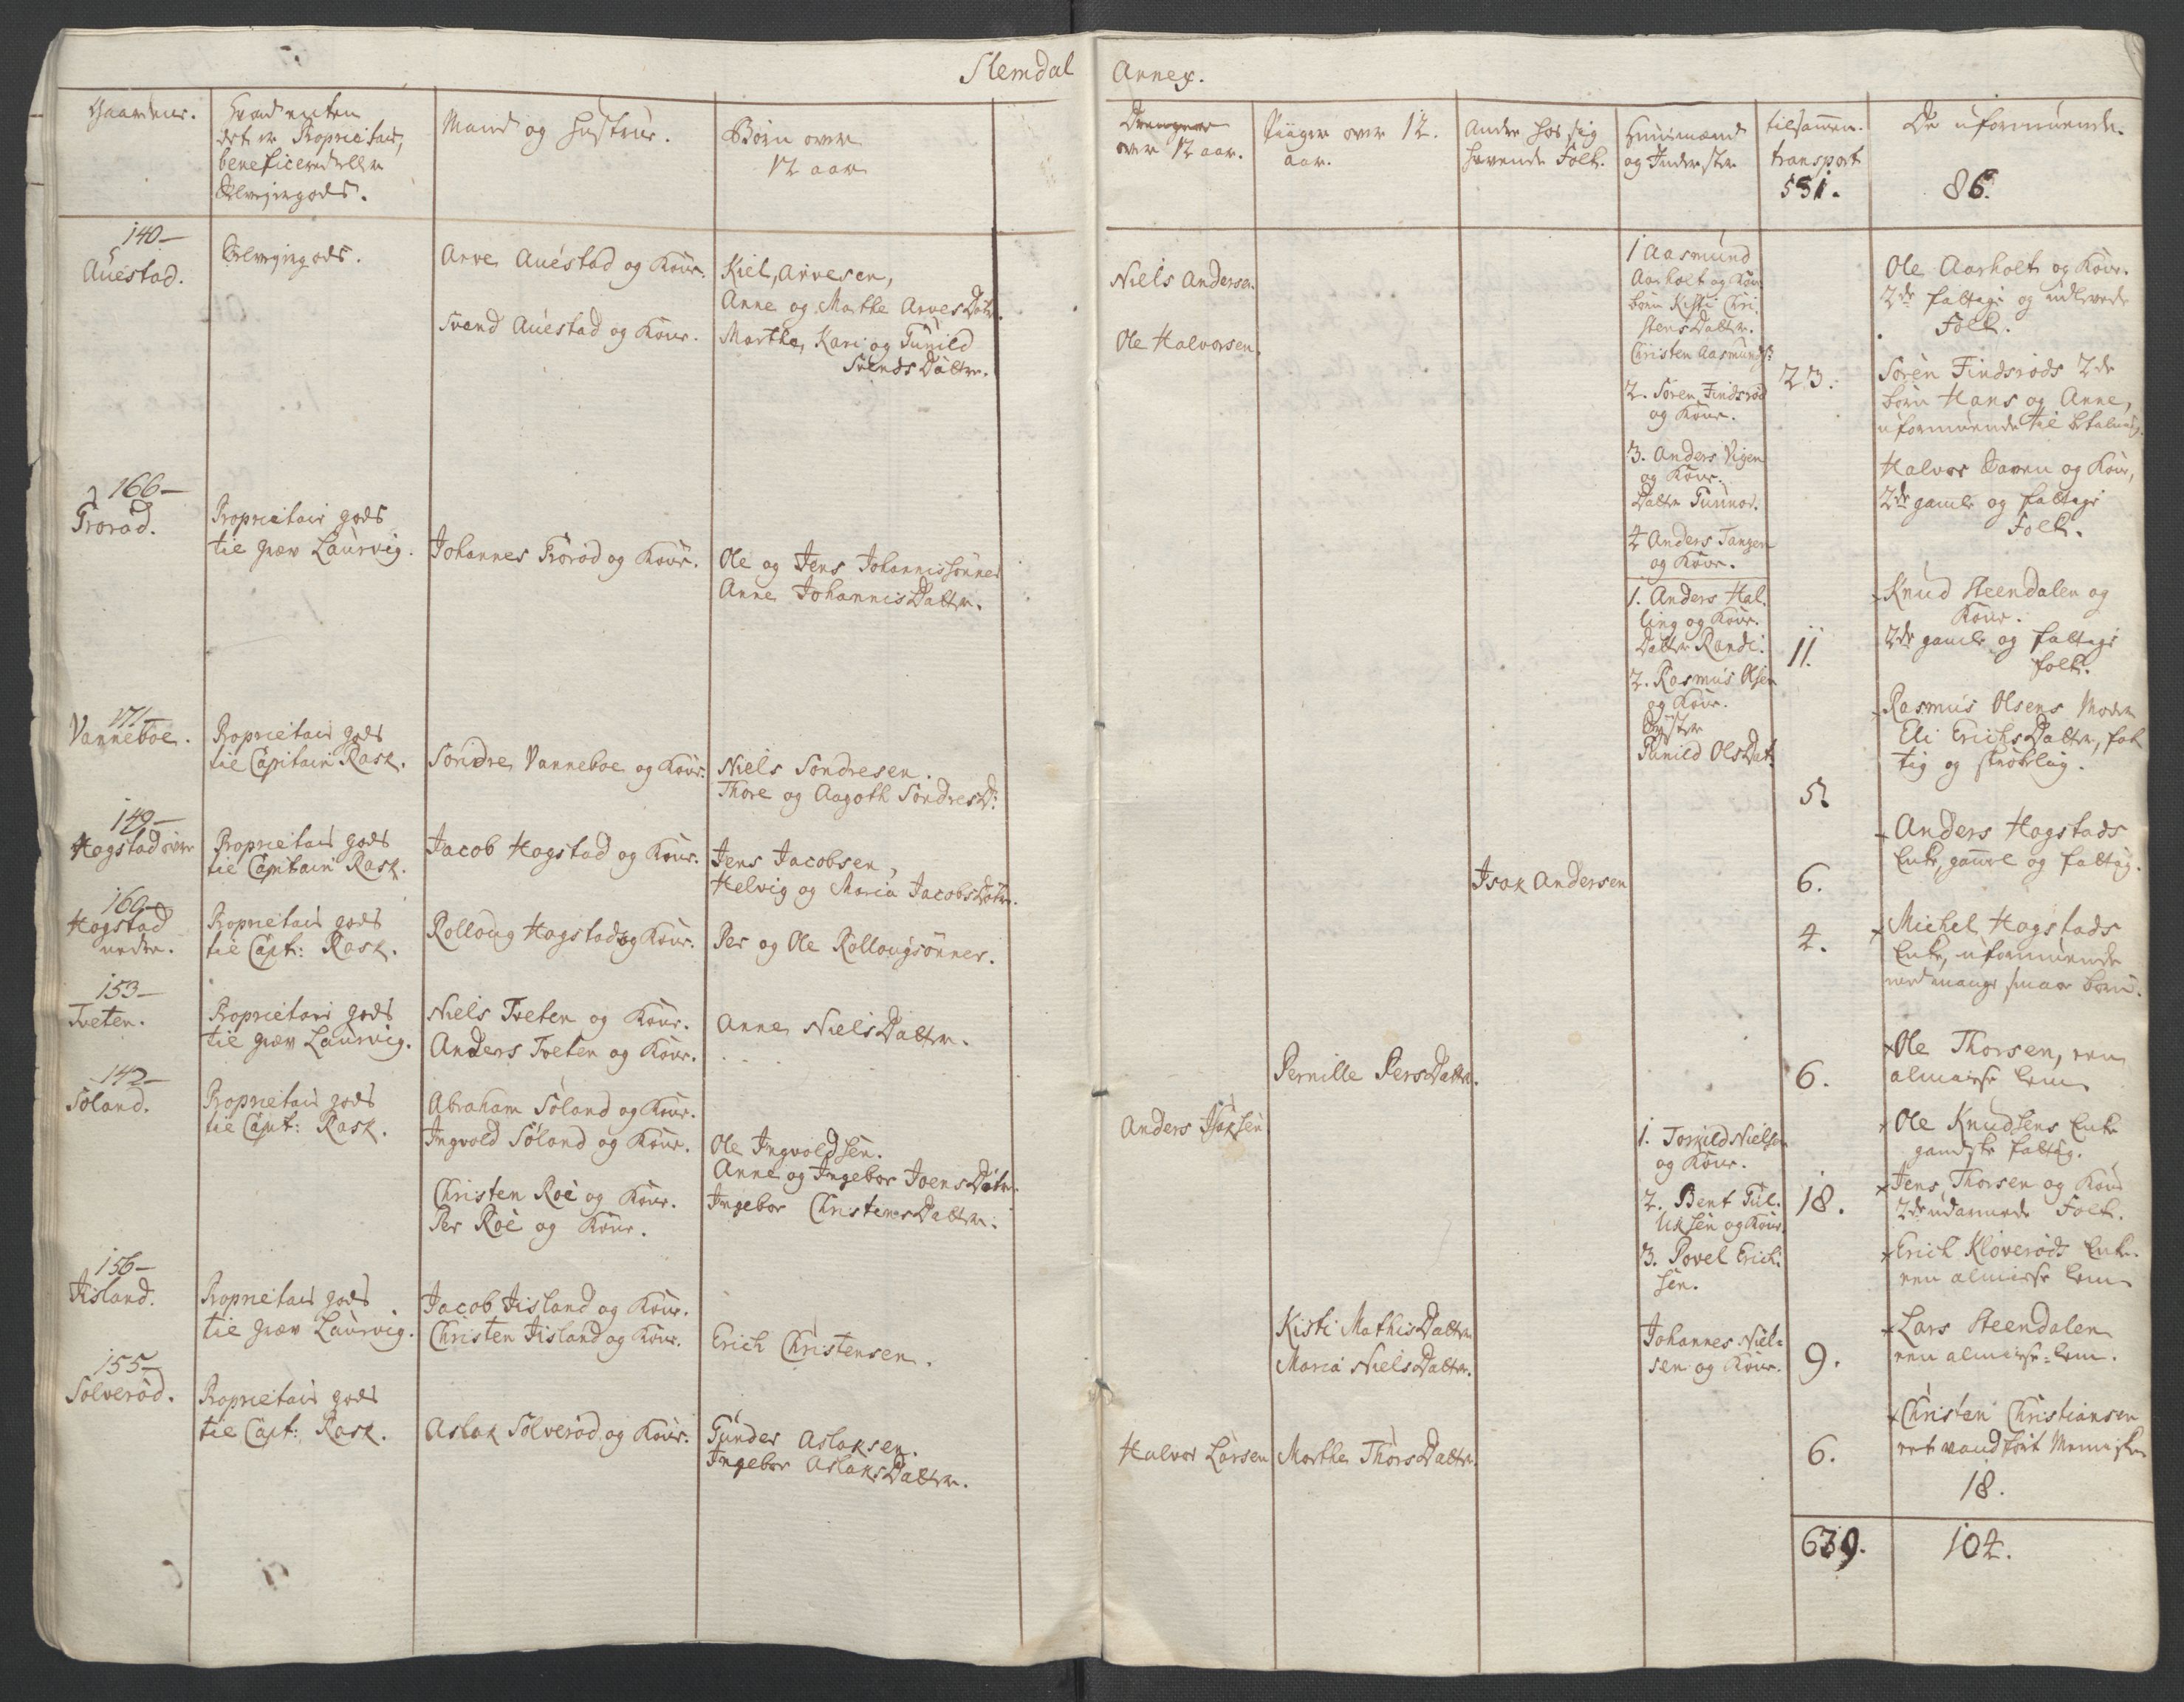 Slemdal Annex.
Gaardene.
Hvad enten
det er Proprietair,
beneficered eller
Selvejergods.
Mand og Hustrue.
Børn over
12 aar
Drengene
over 12 aar.
Piiger over 12.
aar.
Andre hos sig
havende Folk.
Huusmænd
og Inderster
tilsammen.
transport
531.
De uformuende.
86.
140-
Auestad.
Selvejergods.
Arve Auestad og Kone.
Svend Auestad og Kone.
Kiel, Arvesen,
Anne og Marthe Arves Døtre.
Marthe, Kari og Gunild
Svends Døttre.
Niels Andersen.
Ole Halvorsen.
1 Aasmund
Aarholt og Kone
børn Kisti Chri-
stens Datter.
Christen Aasmunds:
2. Søren Findsrød
og Kone.
3. Anders Vigen
og Kone.
Datter Gunnor.
4 Anders Tangen
og Kone.
23.
Ole Aarholt og Kone.
2de fattige og udlevede
Folk.
Søren Findsrøds 2de
børn Hans og Anne,
uformuende til betaling.
Halvor og Kone,
2de gamle og fattige
Folk.
166-
Trorød.
Proprietair gods
til Grev Laurvig.
Johannes Trorød og Kone.
Ole og Jens Johannissønner
Anne Johannis Datter.
1. Anders Hal-
ling og Kone.
Datter Randi.
2. Rasmus Olsen
og Kone.
Syster
Gunild Ols Dat:
11.
Knud Steendalen og
Kone.
2de gamle og fattige
folk.
Rasmus Olsens Moder
Eli Erichs Datter, fat
tig og skrøblig.
171-
Vanneboe.
Proprietair gods
til Capitain Rask.
Sondre Vanneboe og Kone.
Niels Sondresen.
Thore og Aagoth Sondres D:
5.
149-
Hogstad øvre
Proprietair gods
til Capitain Rask.
Jacob Hogstad og Kone.
Jens Jacobsen,
Helvig og Maria Jacobs Døtre.
Isak Andersen
6.
Anders Hogstads
Enke, gammel og fattig.
160-
Hogstad
nedre.
Proprietair gods
til Capt: Rask.
Rolloug Hogstad og Kone.
Per og Ole Rollougsønner.
4.
Michel Hogstads
Enke, uformuende
med mange smaae børn.
153-
Tveten.
Proprietair gods
til Grev Laurvig.
Niels Tveten og Kone.
Anders Tveten og Kone.
Anne Niels Datter.
Pernille Pers Datter.
6.
Ole Thorsen, een
almisse lem
142-
Søland.
Proprietair gods
til Capt: Rask.
Abraham Søland og Kone.
Ingvold Søland og Kone.
Christen Roe og Kone.
Per Roe og Kone.
Ole Ingvoldsen.
Anne og Ingebor Joens Døtre.
Ingebor Christens Datter.
Anders Isaksen
1. Torkild Nielsen
og Kone.
2. Bent Gul-
liksen og Kone
3. Povel Erich-
sen.
18.
Ole Knudsens Enke
gandske fattig.
Jens Thorsen og Kone
2de udarmede Folk.
Erich Kløverøds Enke.
een almisse lem
156-
Iisland.
Proprietair gods
til Grev Laurvig.
Jacob Iisland og Kone.
Christen Iisland og Kone.
Erich Christensen.
Kisti Mathis Datter
Maria Niels Datter.
Johannes Niel-
sen og Kone.
9.
Lars Steendalen
een almisse-lem.
155-
Solverød.
Proprietair gods
til Capt: Rask.
Aslak Solverød og Kone.
Gunder Aslaksen.
Ingebor Aslaks Datter.
Halvor Larsen
Marthe Thors Datter.
6.
Christen Christiansen
et vandført Menniske
18.
639.
104.